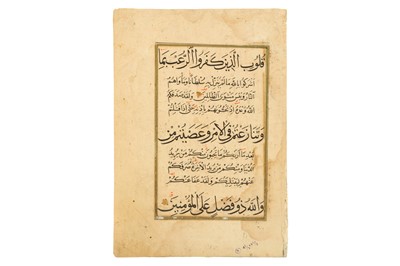 قلوب الذين كفروا الرعب بما
اشركوا بالله ما لم ينزل به سلطانا وماواهم
النار وبئس مثوى الظالمين ولقد صدقكم
الله وعده اذ تحسونهم باذنه حتى اذا فشلتم
وتنازعتم في الامر وعصيتم من
بعد ما اريكم ما تحبون منكم من يريد
الدنيا ومنكم من يريد الاخرة ثم صرفكم
عنهم ليبتليكم ولقد عفا عنكم
والله ذو فضل على المؤمنين